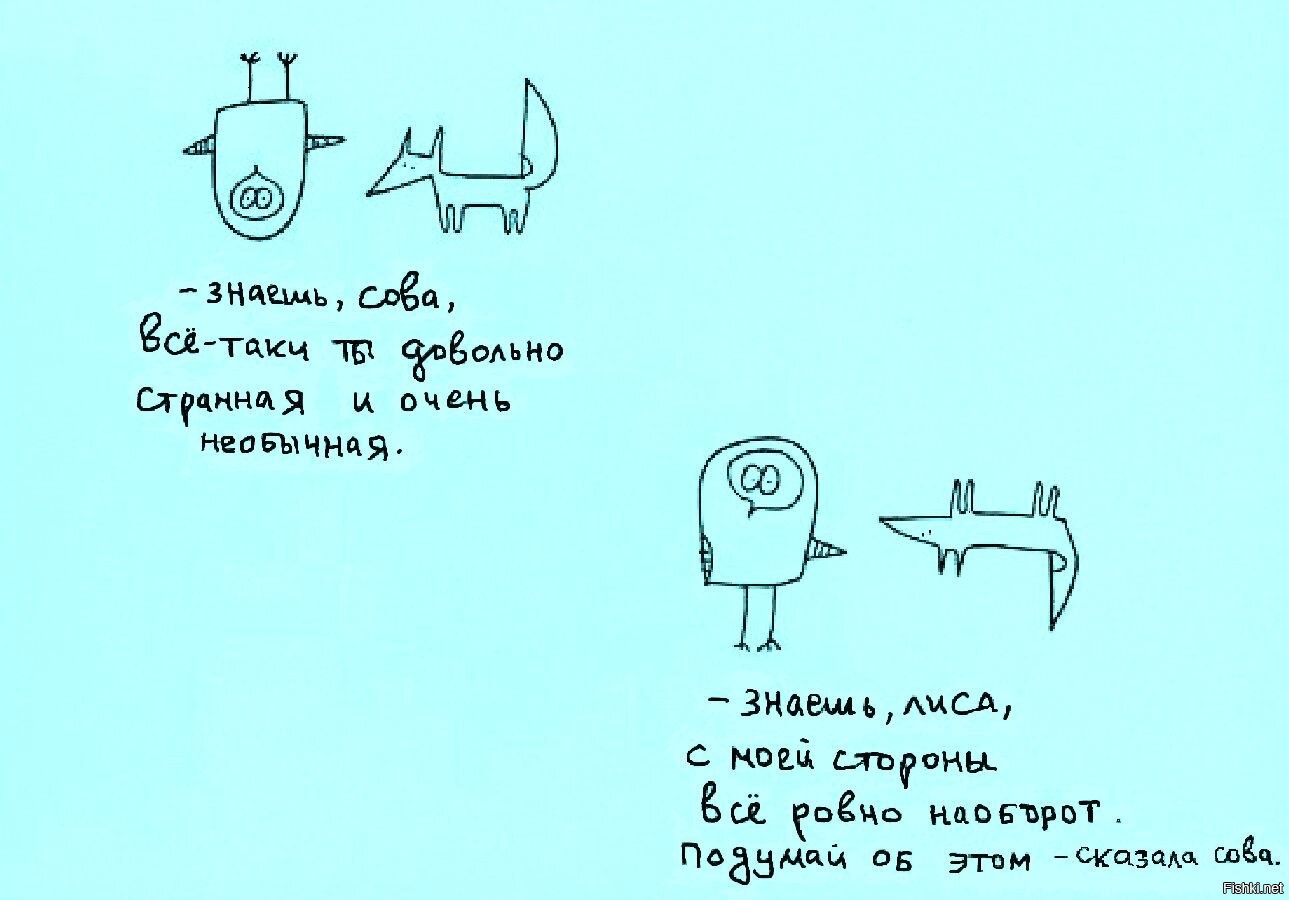 - знаешь, сова,
всё-таки ты довольно
странная и очень
необычная.
- знаешь, лиса,
с моей стороны
всё ровно наоборот.
подумай об этом - сказала сова.
Fishki.net